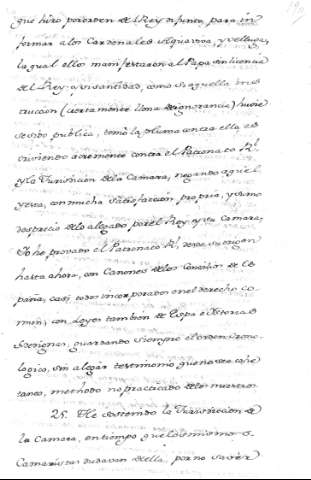 que hizo por orden del Rey difunto para in
formar a los Cardenales Aquaviva, y Belluga,
la qual ellos manifestaron al Papa sin licencia
del Rey a su santidad, como si aquella ins
truccion (ciertamente llena de ignorancia) huvie
se sido publica, tomò la pluma contra ella es
criviendo acremente contra el Patronato Rl
y la Jurisdicion de la Camara, negando aquel
y esta, con mucha satisfaccion propria, y sumo
desprecio de lo alegado por el Rey y su Camara,
Yo he provado el Patronato Rl, desde su origen
hasta ahora, con Canones de los Concilios de Es
paña, casi todos incorporados en el derecho co
mun, con Leyes tambien de España e Historias
guardando siempre el orden crono
logico, sin alegar testimonio que no sea cohe
taneo, methodo no practicado de los nuestros
25. He sostenido la Jurisdicion de
la Camara, en tiempo que los mismos S.
Camaristas dudavan de ella, por no saver